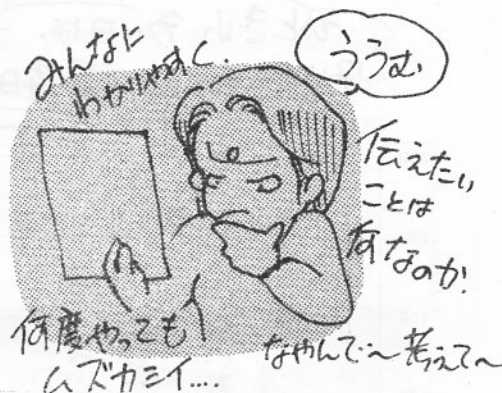 みんなに
わかりやすく.
ううむ
伝えたい
ことは
何なのか!
何度やっても
ムズカシイ....
なやんで〜考えて〜